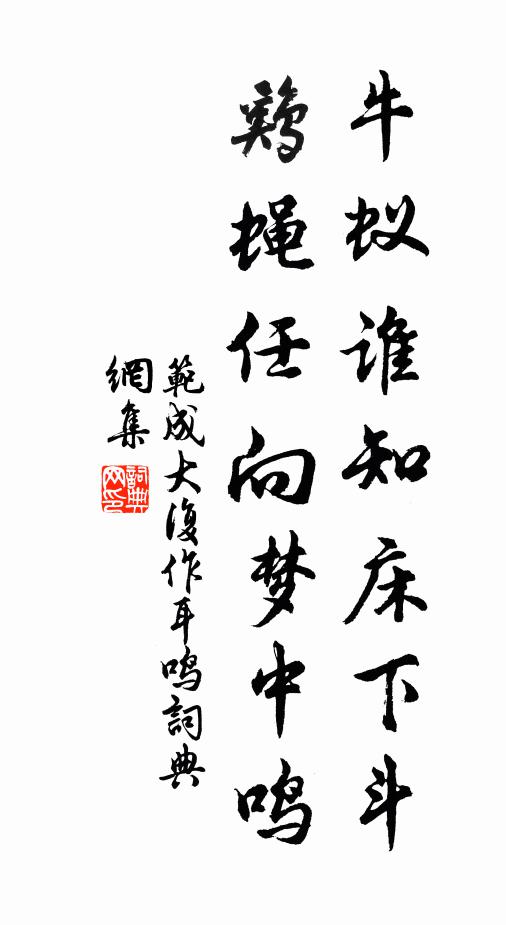 牛蚁谁知床下斗
鸡蝇任向梦中鸣
範成大復作耳鸣詞典
網集
詞典網印